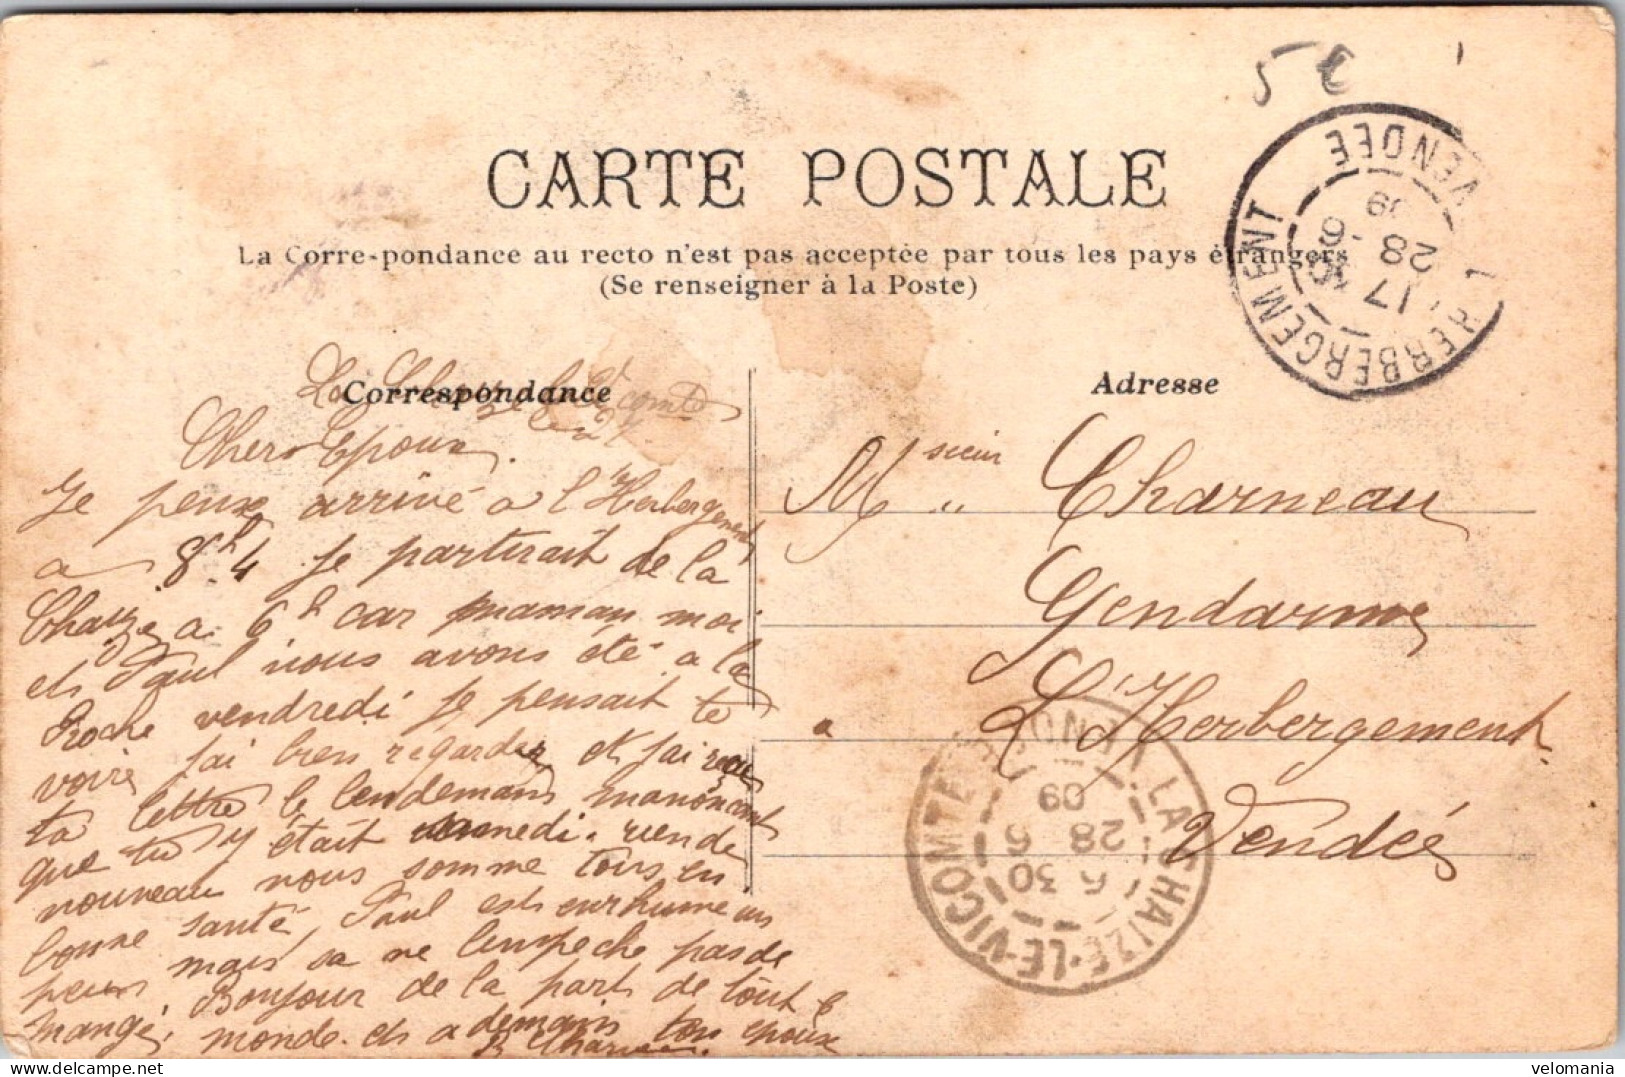 5 €
CARTE POSTALE
La Corre-pondance au recto n'est pas acceptée par tous les pays étrangers
(Se renseigner à la Poste)
L'HERBERGEMENT VENDÉE
17 10
28 6
09
Correspondance
Adresse
La Chaize le Vicomte
Cher Epoux
Je pense arrivé a l'Herbergement
a 8h 4 je partirait de la
Chaize a 6h car maman moi
et Paul nous avons été a la
Roche vendredi je pensait te
voire j'ai bien regarder et j'ai reçu
ta lettre le lendemain manoncant
que tu y était samedi. rien de
nouveau nous somme tous en
bonne santé, Paul est enrhumé un
peux mais sa ne l'empeche pas de
mangé. Bonjour de la part de tout le
monde et a demain ton epoux
Msieur Charneau
Gendarme
a L'Herbergement
Vendée
LA CHAIZE-LE-VICOMTE
6 30
28 6
09
velomania